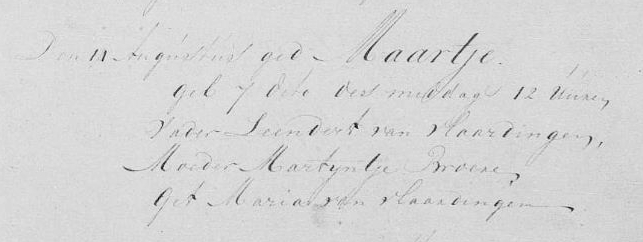 Den 11 Augustus ged. Maartje.
geb 7 dito des middags 12 Uuren,
Vader Leendert van Vlaardingen,
Moeder Martyntje Broene,
Get Maria van Vlaardingen